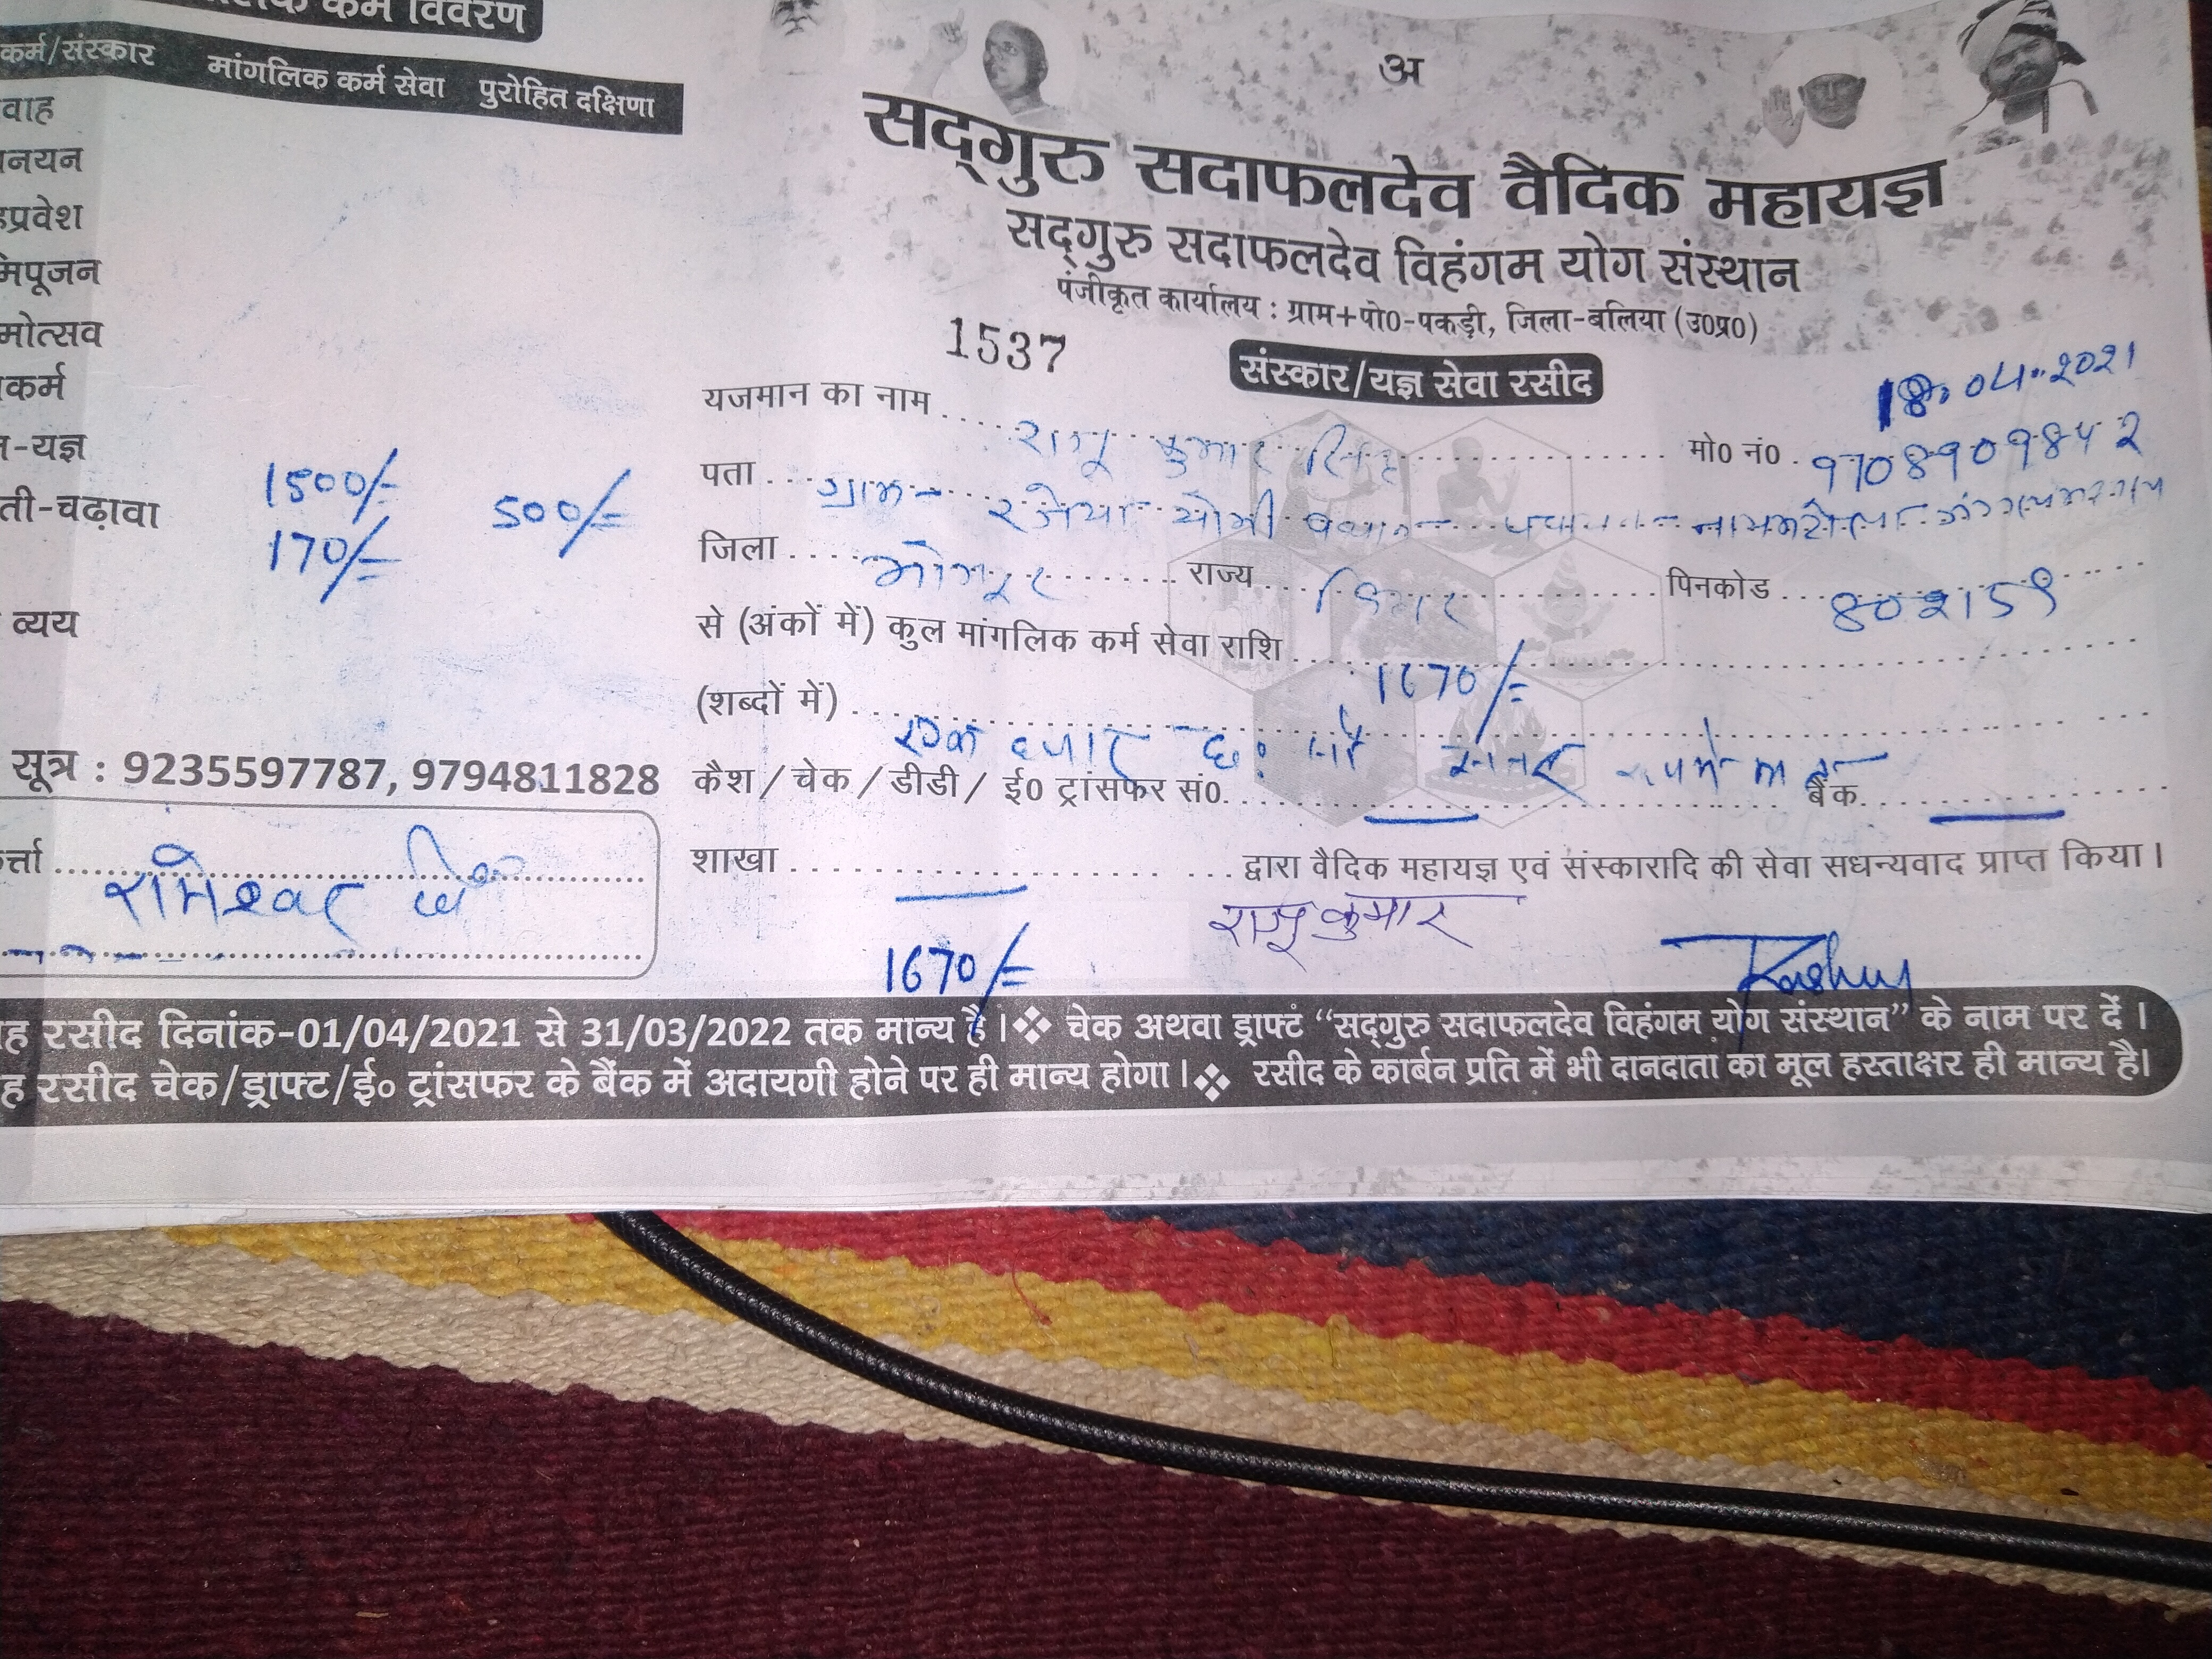 कर्म विवरण
कर्म/संस्कार मांगलिक कर्म सेवा पुरोहित दक्षिणा
वाह
नयन
प्रवेश
पूजन
मोत्सव
कर्म
-यज्ञ
1500/= 500/=
ती-चढ़ावा
170/=
व्यय
सूत्र : 9235597787, 9794811828
र्त्ता रामेश्वर
अ
सद्‌गुरु सदाफलदेव वैदिक महायज्ञ
सद्‌गुरु सदाफलदेव विहंगम योग संस्थान
पंजीकृत कार्यालय : ग्राम+पो0-पकड़ी, जिला-बलिया (उ0प्र0)
1537
संस्कार/यज्ञ सेवा रसीद
18.04.2021
यजमान का नाम राजू कुमार सिंह मो0 नं0 9708909842
पता ग्राम-
जिला राज्य बिहार पिनकोड 802159
से (अंकों में) कुल मांगलिक कर्म सेवा राशि 1670/=
(शब्दों में) एक हजार छः सौ सत्तर रुपये मात्र
कैश / चेक / डीडी / ई0 ट्रांसफर सं0. बैंक
शाखा द्वारा वैदिक महायज्ञ एवं संस्कारादि की सेवा सधन्यवाद प्राप्त किया।
राजू कुमार
1670/=
ह रसीद दिनांक-01/04/2021 से 31/03/2022 तक मान्य है।❖ चेक अथवा ड्राफ्ट "सद्‌गुरु सदाफलदेव विहंगम योग संस्थान" के नाम पर दें।
ह रसीद चेक/ड्राफ्ट/ई० ट्रांसफर के बैंक में अदायगी होने पर ही मान्य होगा।❖ रसीद के कार्बन प्रति में भी दानदाता का मूल हस्ताक्षर ही मान्य है।